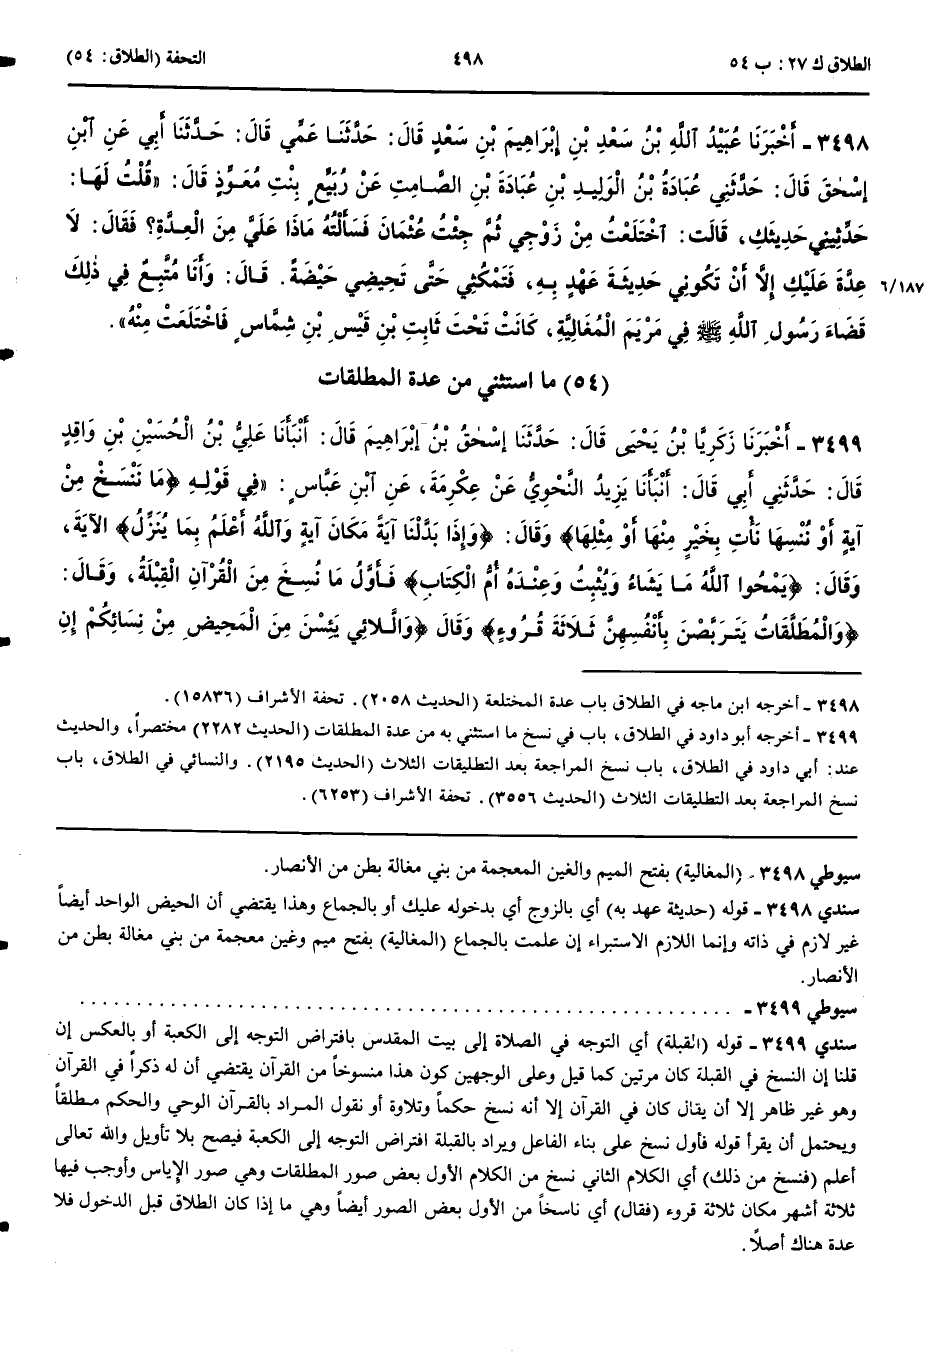 الطلاق ك ٢٧ : ب ٥٤
٤٩٨
التحفة (الطلاق : ٥٤)
٣٤٩٨ - أَخْبَرَنَا عُبَيْدُ ٱللَّهِ بْنُ سَعْدِ بْنِ إِبْرَاهِيمَ بْنِ سَعْدٍ قَالَ: حَدَّثَنَا عَمِّي قَالَ: حَدَّثَنَا أَبِي عَنِ ٱبْنِ
إِسْحٰقَ قَالَ: حَدَّثَنِي عُبَادَةُ بْنُ الْوَلِيدِ بْنِ عُبَادَةَ بْنِ الصَّامِتِ عَنْ رُبَيِّعٍ بِنْتِ مُعَوِّذٍ قَالَ: «قُلْتُ لَهَا:
حَدِّثِينِي حَدِيثَكِ، قَالَت: ٱخْتَلَعْتُ مِنْ زَوْجِي ثُمَّ جِئْتُ عُثْمَانَ فَسَأَلْتُهُ مَاذَا عَلَيَّ مِنَ الْعِدَّةِ؟ فَقَالَ: لَا
عِدَّةَ عَلَيْكِ إِلَّا أَنْ تَكُونِي حَدِيثَةَ عَهْدٍ بِهِ، فَتَمْكُثِي حَتَّى تَحِيضِي حَيْضَةً. قَالَ: وَأَنَا مُتَّبِعٌ فِي ذٰلِكَ
٦/١٨٧
قَضَاءَ رَسُولِ ٱللَّهِ ﷺ فِي مَرْيَمَ الْمَغَالِيَّةِ، كَانَتْ تَحْتَ ثَابِتِ بْنِ قَيْسِ بْنِ شِمَّاسٍ فَاخْتَلَعَتْ مِنْهُ».
(٥٤) ما استثني من عدة المطلقات
٣٤٩٩ - أَخْبَرَنَا زَكَرِيَّا بْنُ يَحْيَى قَالَ: حَدَّثَنَا إِسْحٰقُ بْنُ إِبْرَاهِيمَ قَالَ: أَنْبَأَنَا عَلِيُّ بْنُ الْحُسَيْنِ بْنِ وَاقِدٍ
قَالَ: حَدَّثَنِي أَبِي قَالَ: أَنْبَأَنَا يَزِيدُ النَّحْوِيُّ عَنْ عِكْرِمَةَ، عَنِ ٱبْنِ عَبَّاسٍ: «فِي قَوْلِهِ ﴿مَا نَنْسَخْ مِنْ
آيَةٍ أَوْ نُنْسِهَا نَأْتِ بِخَيْرٍ مِنْهَا أَوْ مِثْلِهَا﴾ وَقَالَ: ﴿وَإِذَا بَدَّلْنَا آيَةً مَكَانَ آيَةٍ وَاللَّهُ أَعْلَمُ بِمَا يُنَزِّلُ﴾ الآيَةَ،
وَقَالَ: ﴿يَمْحُوا ٱللَّهُ مَا يَشَاءُ وَيُثْبِتُ وَعِنْدَهُ أُمُّ الْكِتَابِ﴾ فَأَوَّلُ مَا نُسِخَ مِنَ الْقُرْآنِ الْقِبْلَةُ، وَقَالَ:
﴿وَالْمُطَلَّقَاتُ يَتَرَبَّصْنَ بِأَنْفُسِهِنَّ ثَلَاثَةَ قُرُوءٍ﴾ وَقَالَ ﴿وَالَّلائِي يَئِسْنَ مِنَ الْمَحِيضِ مِنْ نِسَائِكُمْ إِنِ
٣٤٩٨ - أخرجه ابن ماجه في الطلاق باب عدة المختلعة (الحديث ٢٠٥٨). تحفة الأشراف (١٥٨٣٦).
٣٤٩٩ - أخرجه أبو داود في الطلاق، باب في نسخ ما استثني به من عدة المطلقات (الحديث ٢٢٨٢) مختصراً، والحديث
عند: أبي داود في الطلاق، باب نسخ المراجعة بعد التطليقات الثلاث (الحديث ٢١٩٥). والنسائي في الطلاق، باب
نسخ المراجعة بعد التطليقات الثلاث (الحديث ٣٥٥٦). تحفة الأشراف (٦٢٥٣).
سيوطي ٣٤٩٨ - (المغالية) بفتح الميم والغين المعجمة من بني مغالة بطن من الأنصار.
سندي ٣٤٩٨ - قوله (حديثة عهد به) أي بالزوج أي بدخوله عليك أو بالجماع وهذا يقتضي أن الحيض الواحد أيضاً
غير لازم في ذاته وإنما اللازم الاستبراء إن علمت بالجماع (المغالية) بفتح ميم وغين معجمة من بني مغالة بطن من
الأنصار.
سيوطي ٣٤٩٩ - . . . . . . . . . . . . . . . . . . . . . . . . . . . . . . . . . . . . . . . .
سندي ٣٤٩٩ - قوله (القبلة) أي التوجه في الصلاة إلى بيت المقدس بافتراض التوجه إلى الكعبة أو بالعكس إن
قلنا إن النسخ في القبلة كان مرتين كما قيل وعلى الوجهين كون هذا منسوخاً من القرآن يقتضي أن له ذكراً في القرآن
وهو غير ظاهر إلا أن يقال كان في القرآن إلا أنه نسخ حكماً وتلاوة أو نقول المراد بالقرآن الوحي والحكم مطلقاً
ويحتمل أن يقرأ قوله فأول نسخ على بناء الفاعل ويراد بالقبلة افتراض التوجه إلى الكعبة فيصح بلا تأويل والله تعالى
أعلم (فنسخ من ذلك) أي الكلام الثاني نسخ من الكلام الأول بعض صور المطلقات وهي صور الإياس وأوجب فيها
ثلاثة أشهر مكان ثلاثة قروء (فقال) أي ناسخاً من الأول بعض الصور أيضاً وهي ما إذا كان الطلاق قبل الدخول فلا
عدة هناك أصلاً.